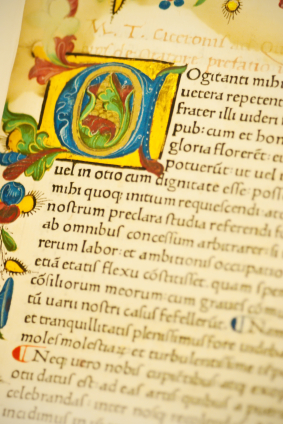 M. T. Ciceronis ad Qu
prefatio
COgitanti mihi
uetera repetenti
frater illi uideri
pub: cum et hon
gloria florerēt: eu
potuerūt: ut uel i
uel in otio cum dignitate esse poss
mihi quoq; initium requiescendi at
nostrum preclara studia referendi f
ab omnibus concessum arbitrarer: si
rerum labor: et ambitionis occupatio
etiā etatis flexu cōstitisset. quam spe
cōsiliorum meorum: cum graues cōm
tū uarii nostri casus fefellerūt: N
et tranquillitatis plenissimus fore
moles molestiaꝝ: et turbulentissime
Neq; uero nobis cupientibus atq; exop
otii datus est: ad eas artis quibus a
celebrandas: inter nosq;